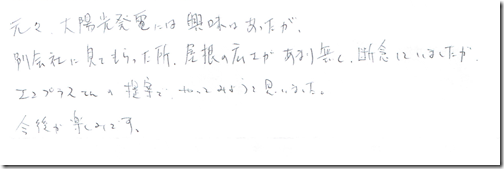 元々、太陽光発電には興味はあったが、
別会社に見てもらった所、屋根の広さがあまり無く、断念していましたが、
エコプラスさんの提案で、やってみようと思いました。
今後が楽しみです。